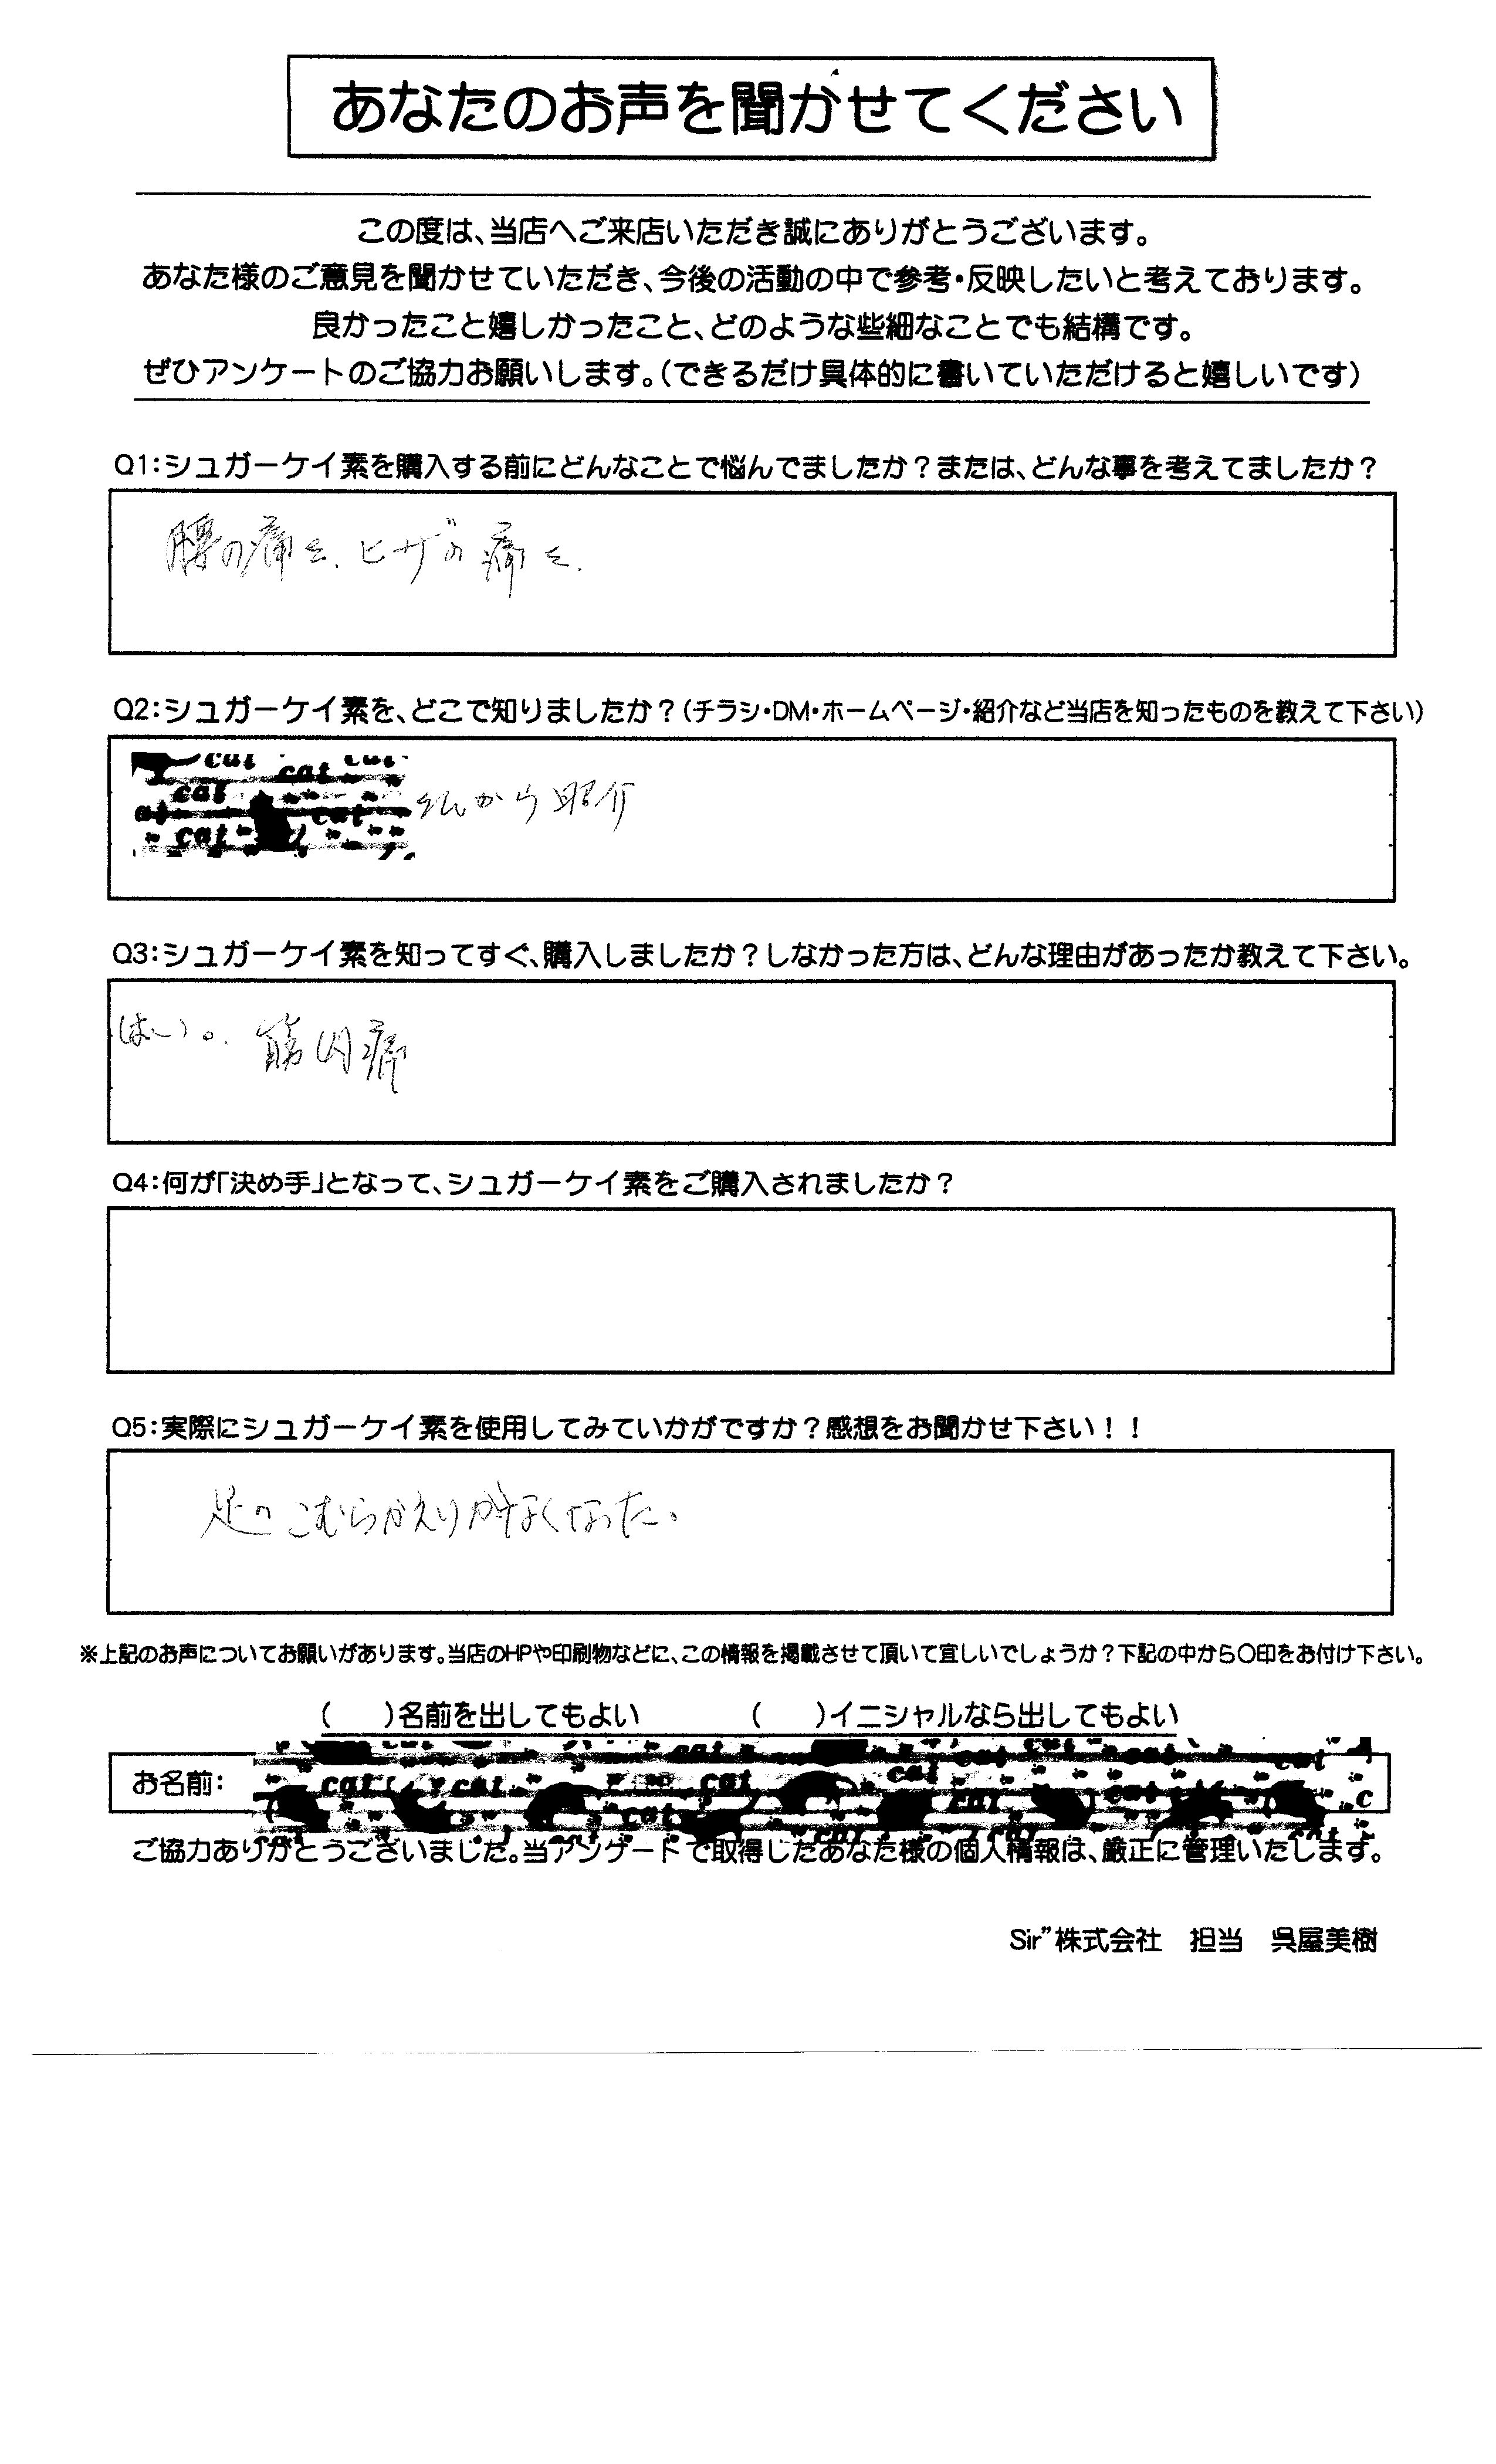 あなたのお声を聞かせてください
この度は、当店へご来店いただき誠にありがとうございます。
あなた様のご意見を聞かせていただき、今後の活動の中で参考・反映したいと考えております。
良かったこと嬉しかったこと、どのような些細なことでも結構です。
ぜひアンケートのご協力お願いします。(できるだけ具体的に書いていただけると嬉しいです)
Q1:シュガーケイ素を購入する前にどんなことで悩んでましたか?または、どんな事を考えてましたか?
腰の痛み、ヒザの痛み、
Q2:シュガーケイ素を、どこで知りましたか?(チラシ・DM・ホームページ・紹介など当店を知ったものを教えて下さい)
cat cat cat
cat
cat cat
さんから紹介
Q3:シュガーケイ素を知ってすぐ、購入しましたか?しなかった方は、どんな理由があったか教えて下さい。
はい。筋肉痛
Q4:何が「決め手」となって、シュガーケイ素をご購入されましたか?
Q5:実際にシュガーケイ素を使用してみていかがですか?感想をお聞かせ下さい!!
足のこむらがえりがなくなった。
※上記のお声についてお願いがあります。当店のHPや印刷物などに、この情報を掲載させて頂いて宜しいでしょうか?下記の中から〇印をお付け下さい。
(　　)名前を出してもよい　　　　(　　)イニシャルなら出してもよい
お名前:
cat cat cat cat
ご協力ありがとうございました。当アンケートで取得したあなた様の個人情報は、厳正に管理いたします。
Sir”株式会社　担当　呉屋美樹